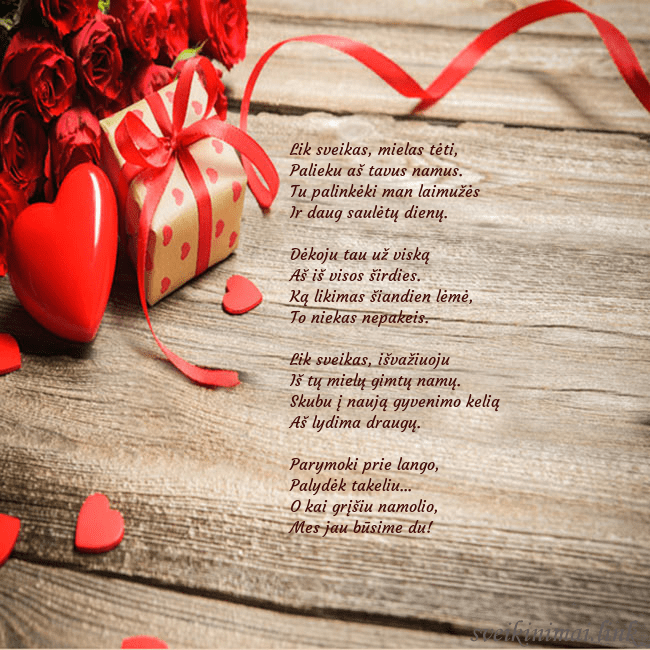 Lik sveikas, mielas tėti,
Palieku aš tavus namus.
Tu palinkėki man laimužės
Ir daug saulėtų dienų.
Dėkoju tau už viską
Aš iš visos širdies.
Ką likimas šiandien lėmė,
To niekas nepakeis.
Lik sveikas, išvažiuoju
Iš tų mielų gimtų namų.
Skubu į naują gyvenimo kelią
Aš lydima draugų.
Parymoki prie lango,
Palydėk takeliu...
O kai grįšiu namolio,
Mes jau būsime du!